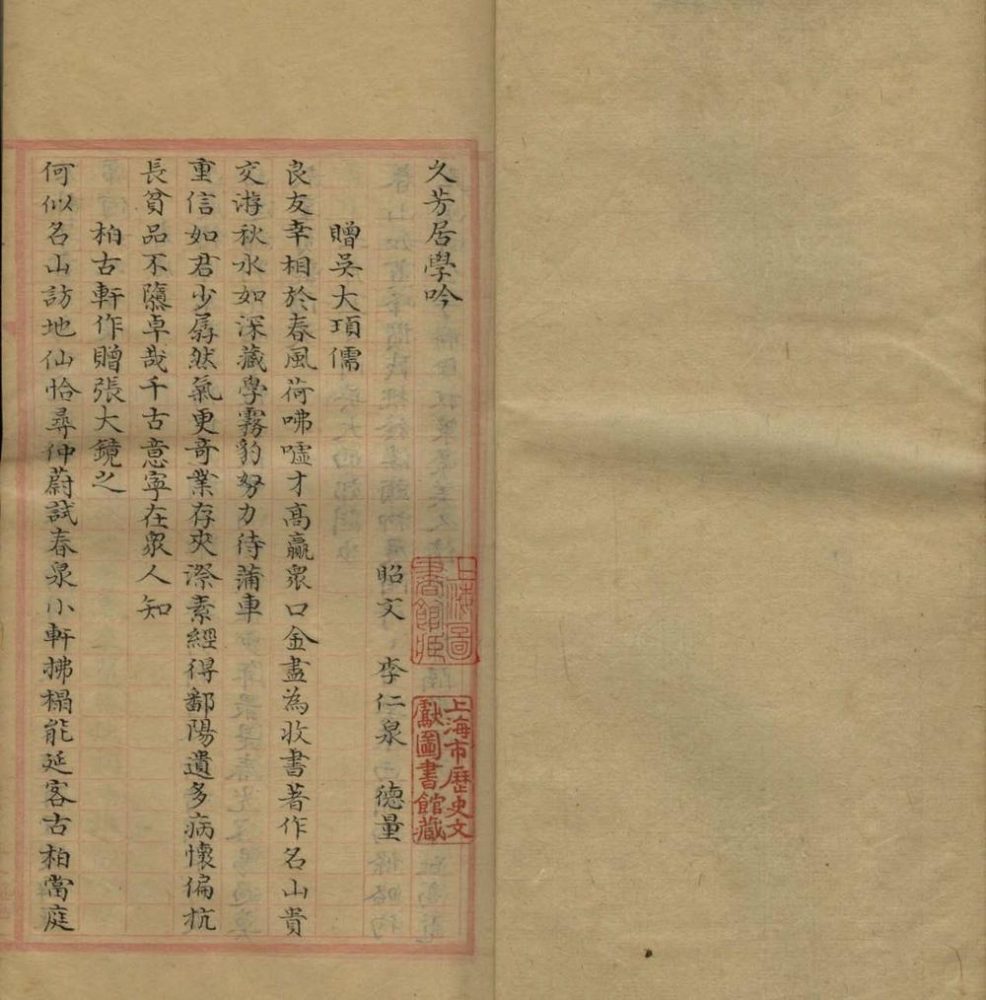 久芳居學吟
昭文 李仁泉 德量
贈吳大項儒
良友幸相於春風荷咈噓才高贏眾口金盡為收書著作名山貴
交游秋水如深藏學霧豹努力待蒲車
重信如君少孱然氣更奇業存夾漈素經得鄱陽遺多病懷偏抗
長貧品不隳卓哉千古意寧在眾人知
柏古軒作贈張大鏡之
何似名山訪地仙恰尋仲蔚試春泉小軒拂榻能延客古柏當庭
上海圖書館藏
上海市歷史文獻圖書館藏